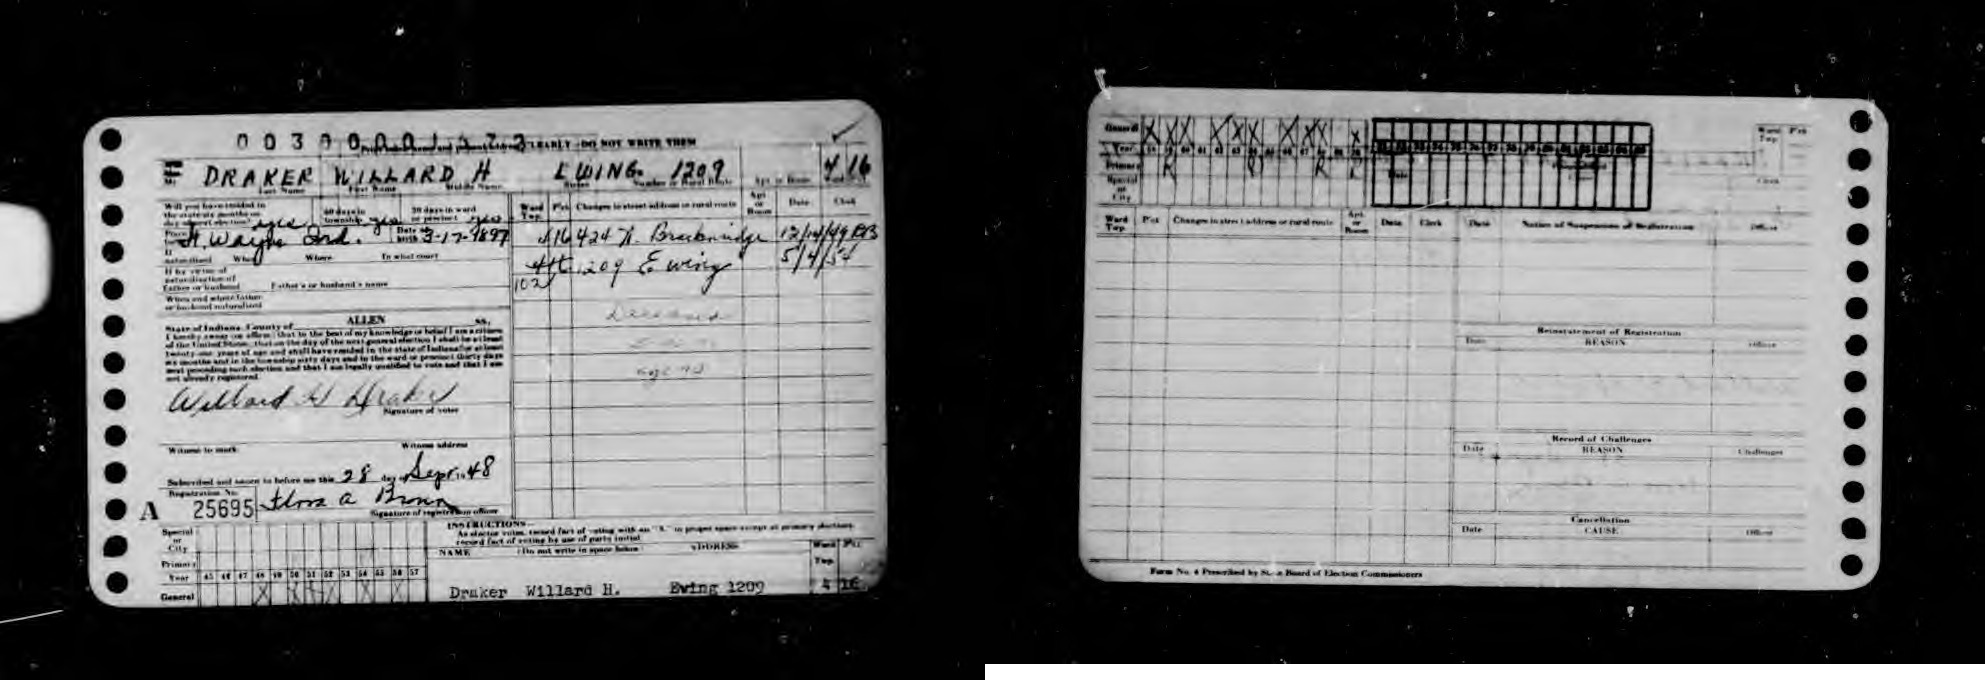 CLEARLY - DO NOT WRITE THEM
DRAKER WILLARD H EWING 1209 4 16
Last Name First Name Middle Name Street Number or Rural Route Apt. or Room
Will you have resided in the state six months on day of next election? yes 60 days in township yes 30 days in ward or precinct yes
Ft. Wayne Ind. Date of birth 3-17-1897
If naturalized When Where In what court
If by virtue of naturalization of Father or husband Father's or husband's name
When and where father or husband naturalized
State of Indiana, County of ALLEN ss.
I hereby swear (or affirm) that to the best of my knowledge or belief I am a citizen
of the United States, that on the day of the next general election I shall be at least
twenty-one years of age and shall have resided in the state of Indiana for at least
six months and in the township sixty days and in the ward or precinct thirty days
next preceding such election and that I am legally qualified to vote and that I am
not already registered.
Willard H Draker
Signature of voter
Witness to mark Witness address
Subscribed and sworn to before me this 28 day of Sept. 19 48
Registration No.
A 25695 Flora A
Signature of registration officer
Ward Twp. P'ct Changes in street address or rural route Apt. or Room Date Clerk
4 16 424 N. 12/14/49
1209 Ewing 5/4/54
102
Deceased
Special or City
Primary
Year 45 46 47 48 49 50 51 52 53 54 55 56 57
General X X X X X
INSTRUCTIONS—
As elector votes, record fact of voting with an "X" in proper space except at primary elections,
record fact of voting by use of party initial.
NAME (Do not write in space below) ADDRESS Ward Twp. P'ct
Draker Willard H. Ewing 1209 4 16
General
Year
Primary
Special or City
Ward Twp. P'ct
Clerk
Ward Twp. P'ct Changes in street address or rural route Apt. or Room Date Clerk Date Notice of Suspension of Registration Officer
Reinstatement of Registration
Date REASON Officer
Record of Challenges
Date REASON Challenger
Cancellation
Date CAUSE Officer
Form No. 4 Prescribed by State Board of Election Commissioners